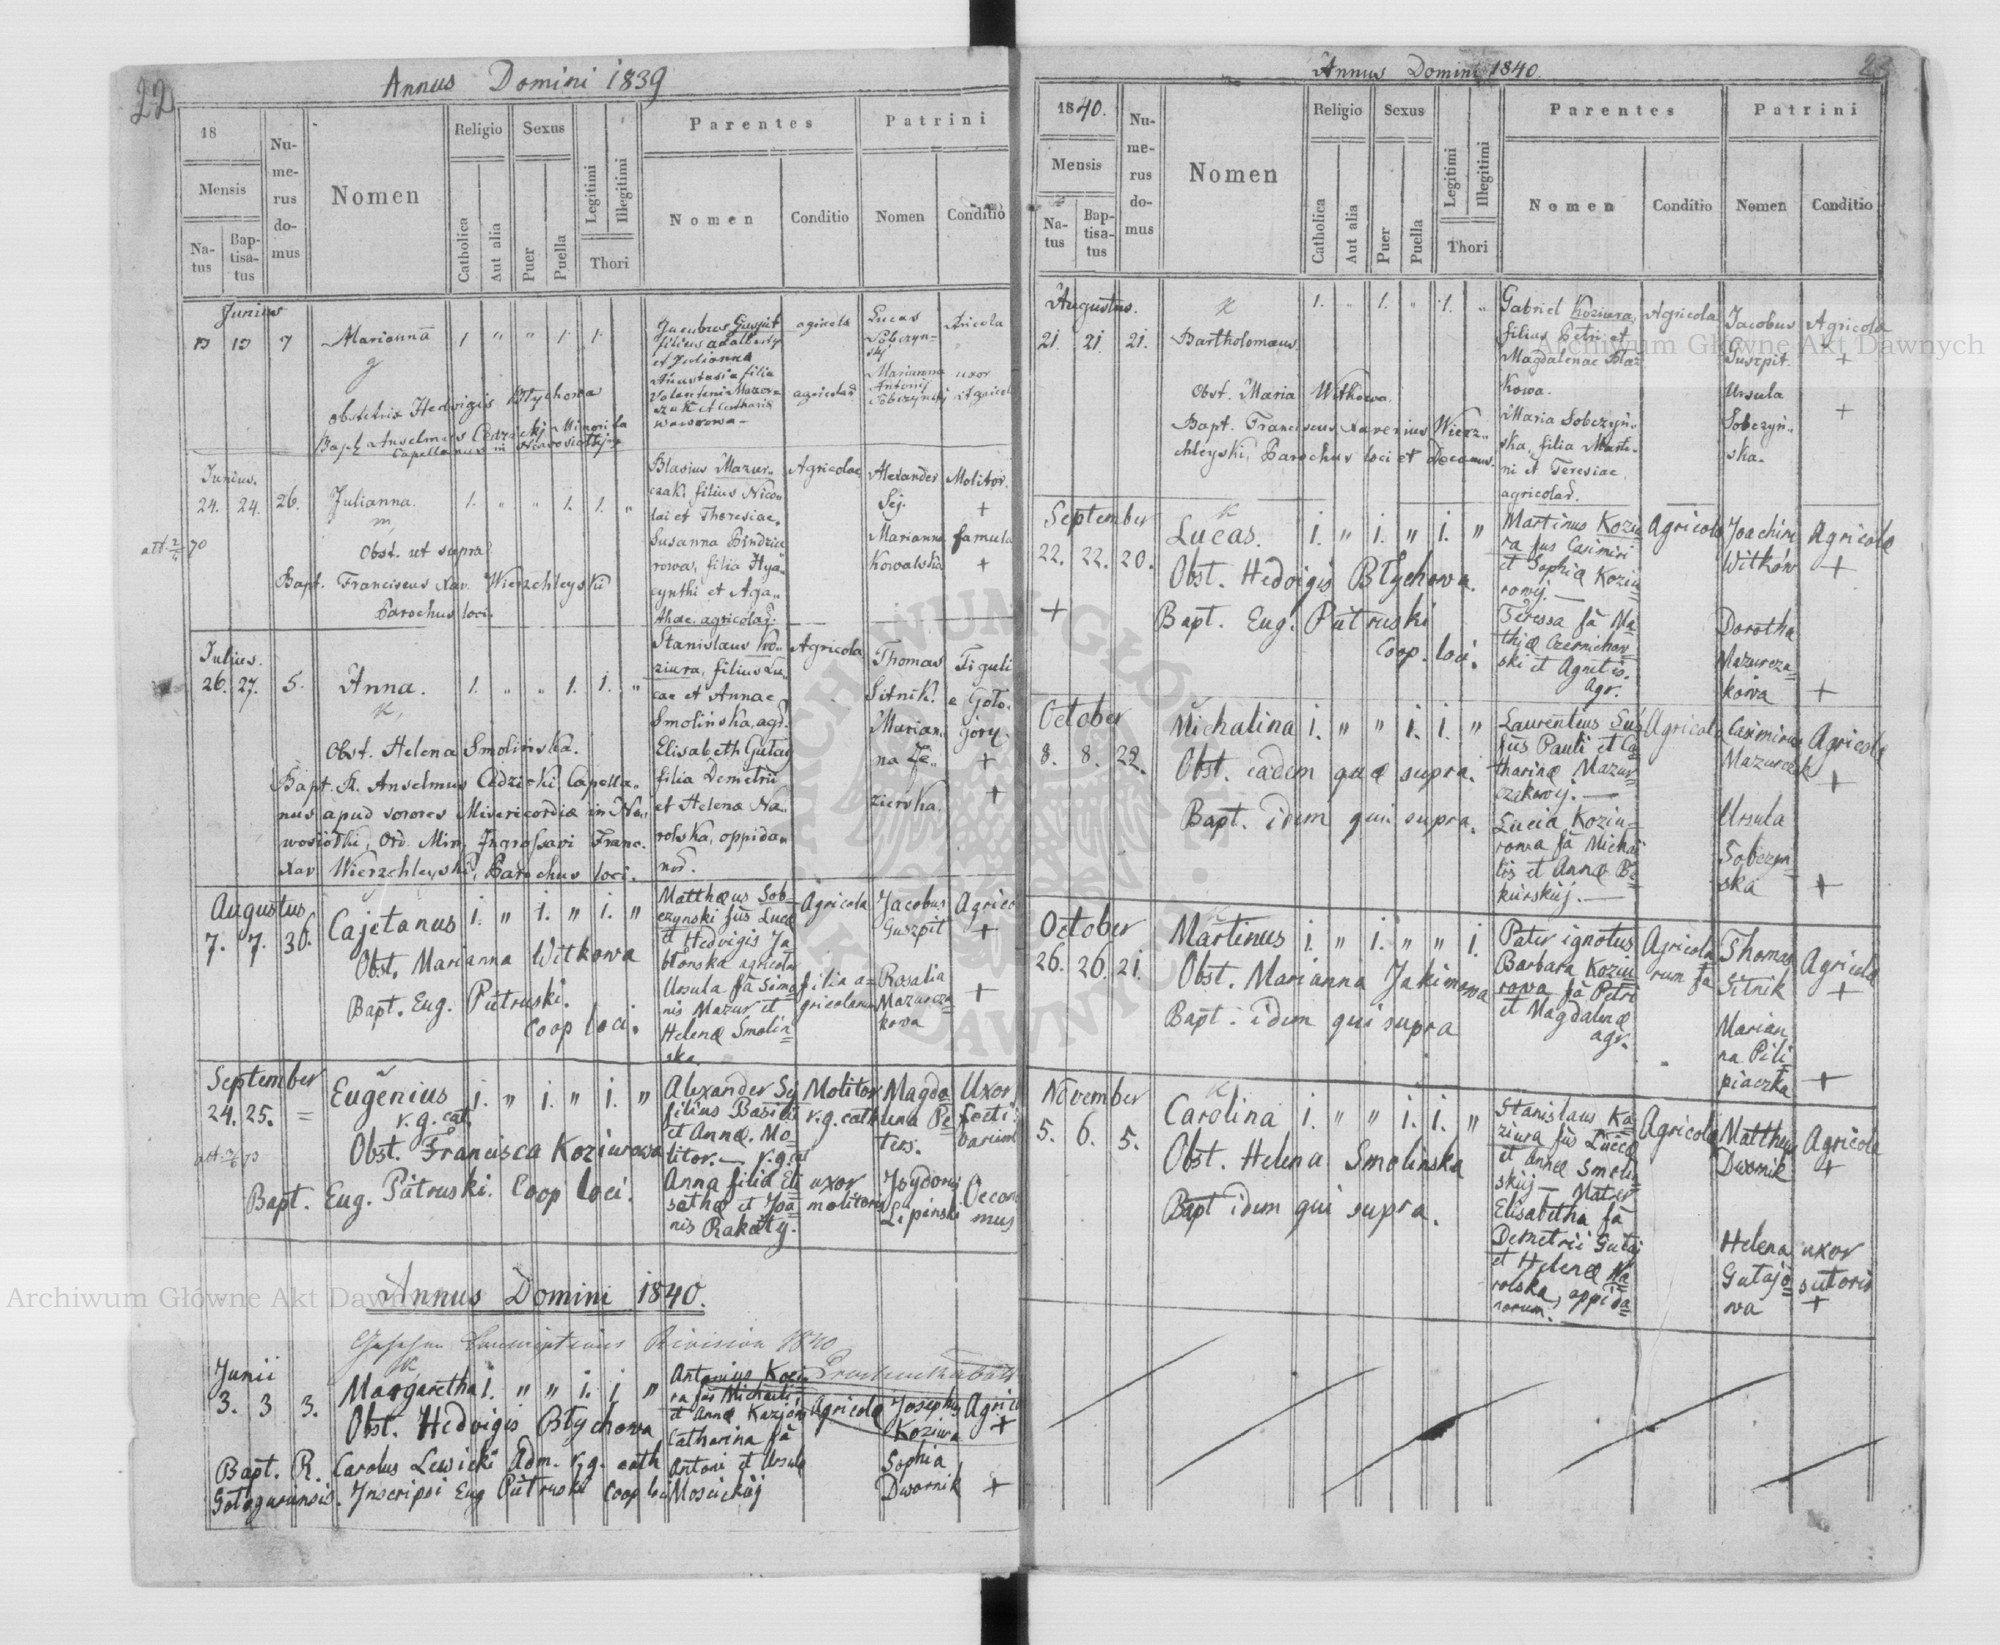 22
Annus Domini 1839
18
Mensis
Na-
tus
Bap-
tisa-
tus
Nu-
me-
rus
do-
mus
Nomen
Religio
Catholica
Aut alia
Sexus
Puer
Puella
Legitimi
Illegitimi
Thori
Parentes
Nomen
Conditio
Patrini
Nomen
Conditio
Junius
13 13 7 Marianna 1 " " 1. 1.
obstetrix Hedvigis Błychowa
Bapt. Anselmus
Capellanus in
filius Adalberti
et Julianna
Anastasia filia
Valentini Mazur=
agricola
agricolar.
Lucas
Sobczyn=
ski
Marianna
Antonij
Sobczynskij
uxor
Junius.
24. 24. 26. Julianna. 1. " " 1. 1. "
m
Obst. ut supra.
Bapt. Franciscus Xav. Wierzchleyski
Parochus loci.
Blasius Mazur=
czak, filius Nico=
lai et Theresiae.
Susanna
rowa, filia Hya=
cynthi et Aga=
thae. agricolar.
Agricolae
Alexander
Sej.
Marianna
Kowalska
Molitor.
+
famula
+
Julius.
26. 27. 5. Anna. 1. " " 1. 1. "
K,
Obst. Helena Smolinska.
Bapt. R. Anselmus Cedzicki, Capella=
nus apud sorores Misericordiae in No=
wosiołki, Ord. Min. Ingrossavi Franc.
Xav. Wierzchleyski, Parochus loci.
Stanislaus Ko=
ziura, filius Lu=
cae et Annae
Smolinska, agr.
Elisabeth Gułay
filia Demetrii
et Helenae Na=
rolska, oppida=
nor.
Agricola
Thomas
Sitnik.
Marian=
na Ze=
zierska.
Figuli
e Goło=
gory.
+
+
Augustus
7. 7. 36. Cajetanus 1. " 1. " 1. "
Obst. Marianna Witkowa
Bapt. Eug. Pietruski.
Coop loci.
Matthaeus Sob=
czynski fius Lucae
et Hedvigis Ja=
błonska agricolar
Ursula fa Simo=
nis Mazur et
Helenae Smolin=
ska.
Agricola
filia a=
gricolarum
Jacobus
Guszpit
Rosalia
Mazurcza=
kowa
Agrico
+
+
September
24. 25. = Eugenius 1. " 1. " 1. "
r. g. cat.
Obst. Francisca Koziurowa
Bapt. Eug. Pietruski. Coop loci.
Alexander Sej
filius Basilii
et Annae. Mo=
litor. — r. g. cat
Anna filia
et Joa=
nis Rakoty.
Molitor
r. g. cath
uxor
molitoris
Magda=
lena Pe=
ters.
Isydorus
Lipinski
Uxor
Oecono
mus
Annus Domini 1840.
Revision 1840
Junii
3. 3 3. Margaretha 1. " " 1. 1 "
Obst. Hedvigis Błychowa
Bapt. R. Carolus Lewicki Adm. r. g. cath
Gołogurensis. Inscripsi Eug Pietruski Coop loci
Antonius Koziu=
ra fius Michaeli
et Annae
Catharina fa
Antoni et Ursula
Moscickij
Agricolae
Josephus
Koziura
Sophia
Dwornik
Agrico
+
+
23
Annus Domini 1840.
1840.
Mensis
Na-
tus
Bap-
tisa-
tus
Nu-
me-
rus
do-
mus
Nomen
Religio
Catholica
Aut alia
Sexus
Puer
Puella
Legitimi
Illegitimi
Thori
Parentes
Nomen
Conditio
Patrini
Nomen
Conditio
Augustus.
K
21. 21. 21. Bartholomaeus. 1. " 1. " 1. "
Obst. Maria Witkowa.
Bapt. Franciscus Xaverius Wierz=
chleyski, Parochus loci et Decanus.
Gabriel Koziura,
filius Petri et
Magdalenae Błaz=
kowa.
Maria Sobczyn=
ska, filia Marti=
ni et Teresiae.
agricolar.
Agricola
Jacobus
Guszpit.
Ursula
Sobczyn=
ska.
Agricola
+
+
September
K
22. 22. 20. Lucas. 1. " 1. " 1. "
Obst. Hedvigis Błychowa.
+
Bapt. Eug. Pietruski
Coop. loci.
Martinus Koziu=
ra fius Casimiri
et Sophiae Koziu=
rowij. —
Teressa fa Ma=
thiae Czernichow=
ski et Agnetis.
agr.
Agricola
Joachim
Witków
Dorotha
Mazurcza=
kowa
Agricola
+
+
October
8. 8. 22. Michalina 1. " " 1. 1. "
Obst. eadem quae supra.
Bapt. idem qui supra.
Laurentius
fius Pauli et Ca=
tharinae Mazur=
czakowij. —
Lucia Koziu=
rowa fa Michae=
lis et Annae
Agricola
Casimirus
Mazurczak
Ursula
Sobczyn=
ska
Agricola
+
+
October
K
26. 26. 21. Martinus 1. " 1. " " 1.
Obst. Marianna Jakimowa
Bapt. idem qui supra
Pater ignotus
Barbara Koziu=
rowa fa Petri
et Magdalenae
agr.
Agricola=
rum fa
Thomas
Sitnik
Marian=
na Pili=
piaczka
Agricola
+
+
November
K
5. 6. 5. Carolina 1. " " 1. 1. "
Obst. Helena Smolinska
Bapt idem qui supra.
Stanislaus Ko=
ziura fius Lucae
et Annae Smolin=
skij — Mater
Elisabetha fa
Demetrii Gułaj
et Helenae Na=
rolska, oppida=
norum.
Agricola
Mattheus
Dwornik
Helena
Gułajo=
wa
Agricola
+
uxor
sutoris
+
Archiwum Główne Akt Dawnych
Archiwum Główne Akt Dawnych
ARCHIWUM GŁÓWNE AKT DAWNYCH